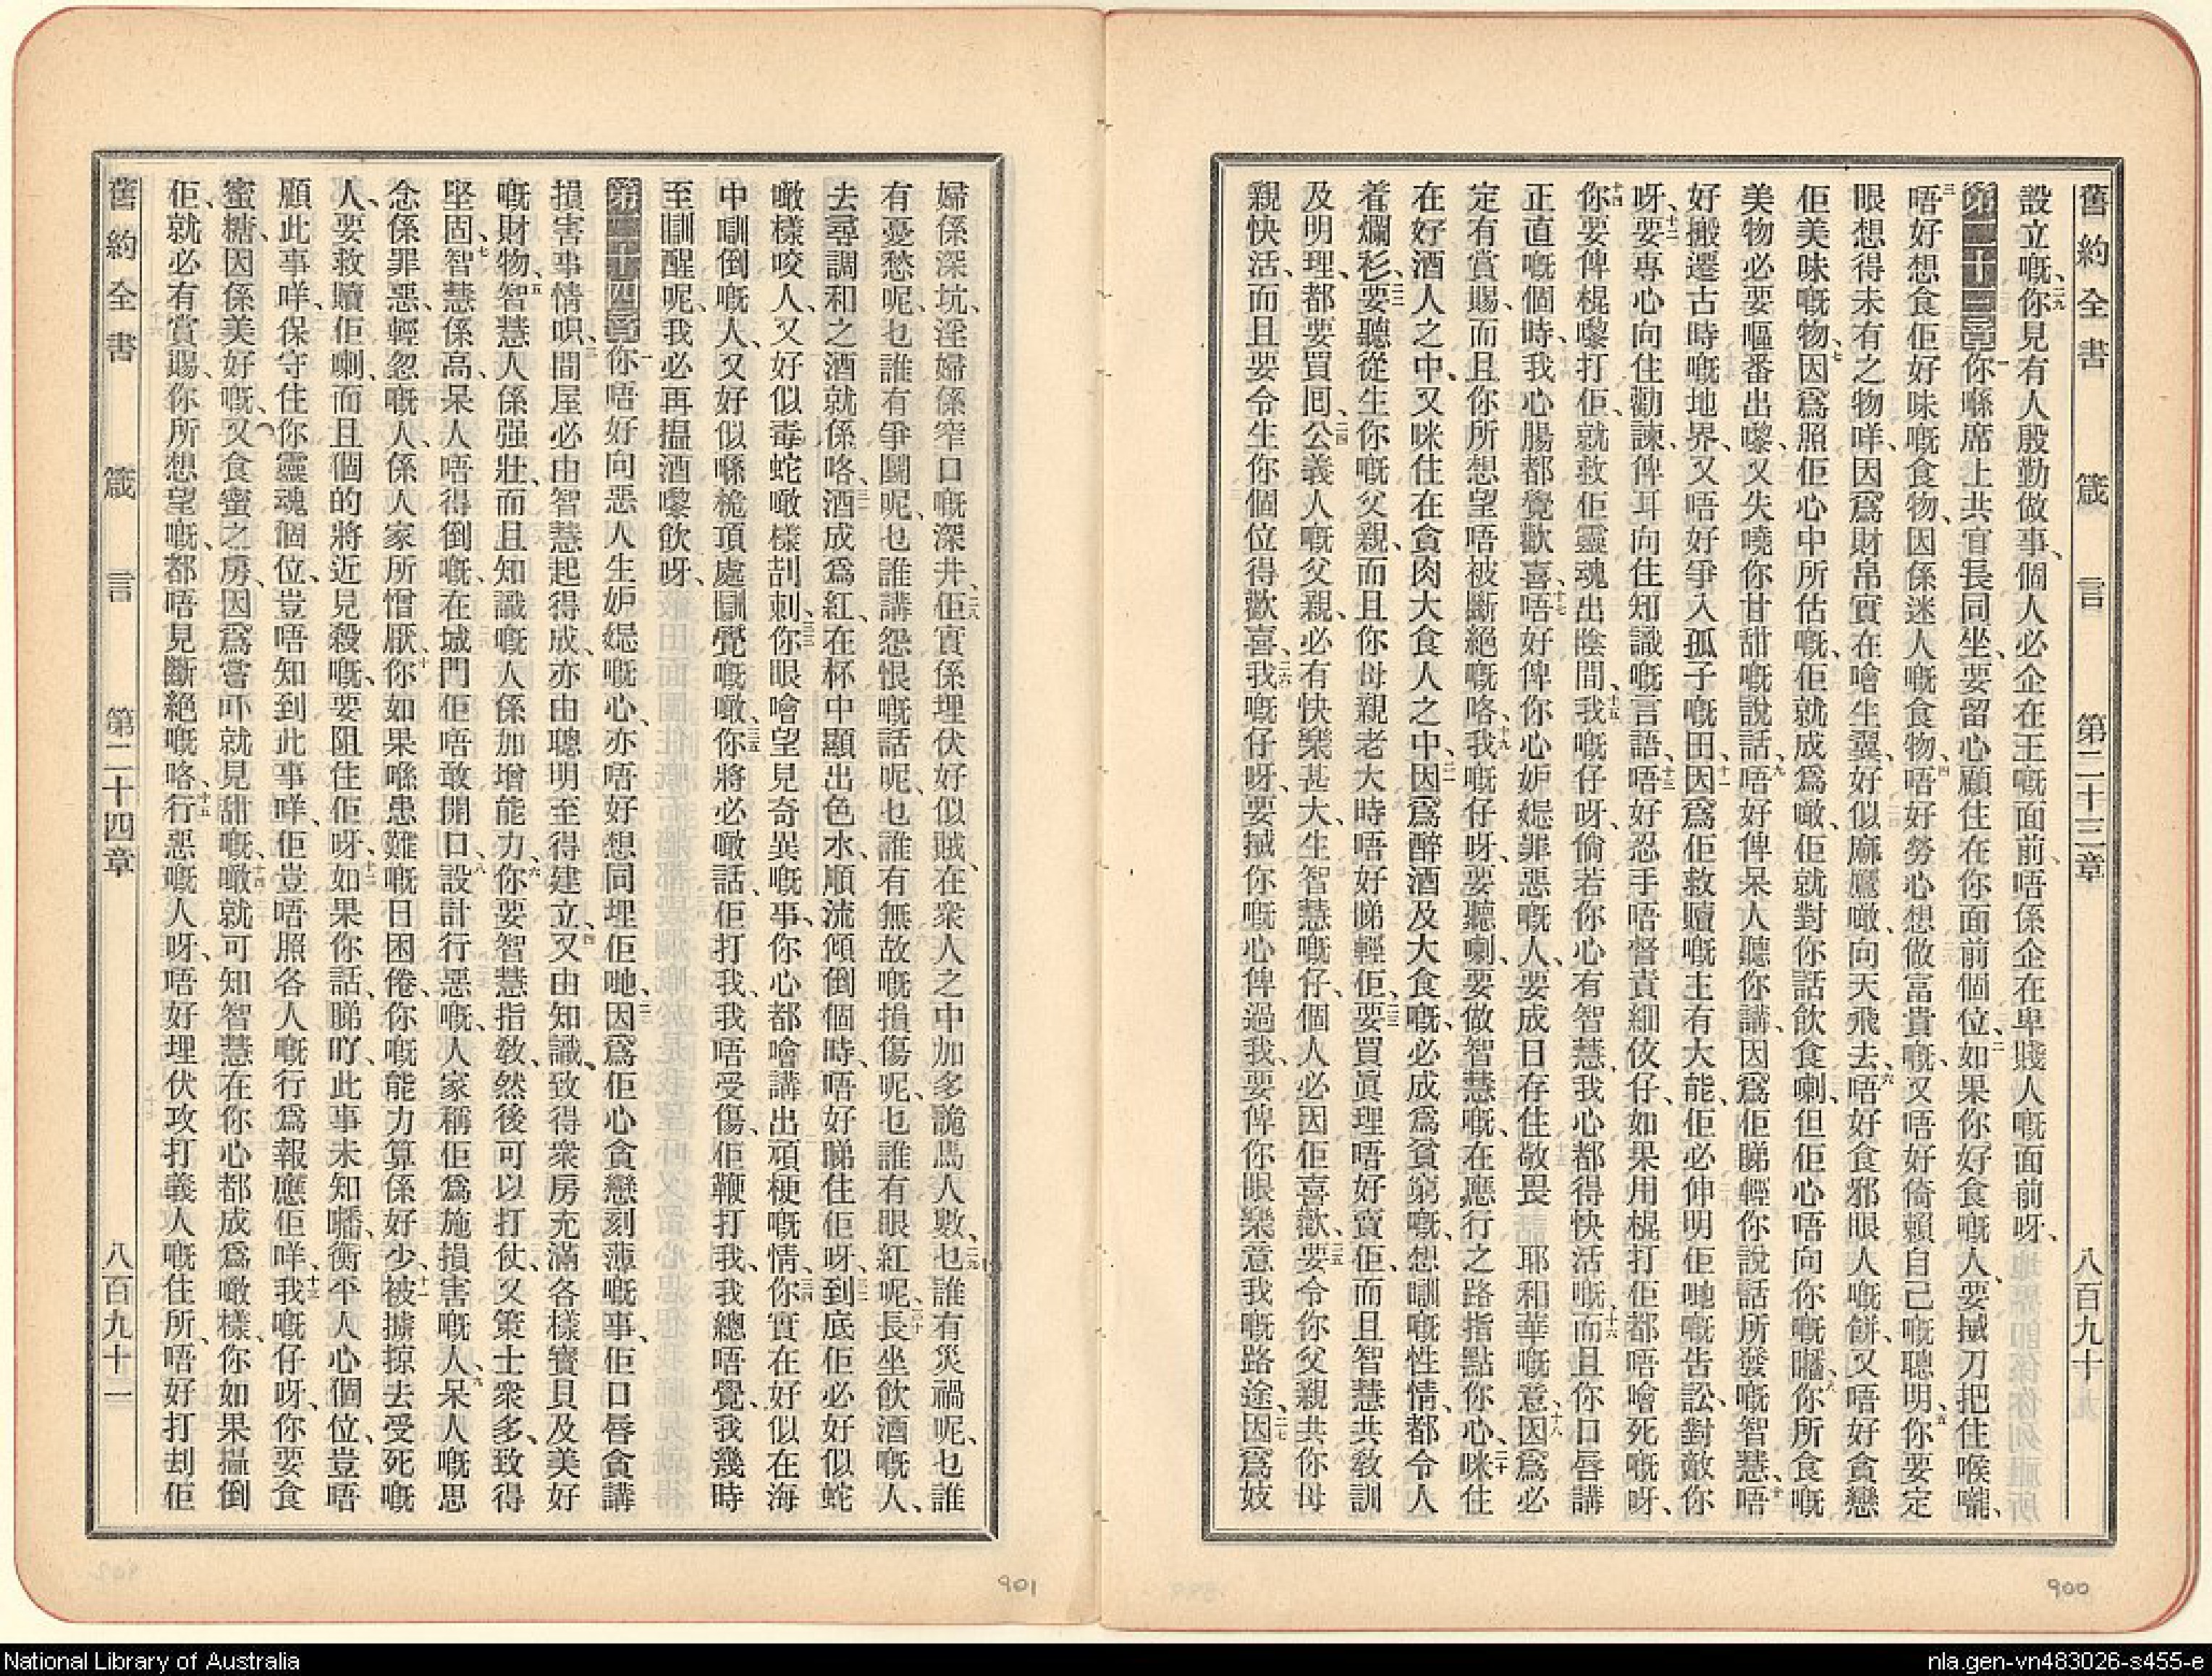 舊約全書 箴言 第二十三章 八百九十
設立嘅、二九你見有人殷勤做事、個人必企在王嘅面前、唔係企在卑賤人嘅面前呀、
第二十三章 一你喺席上共官長同坐、要留心顧住在你面前個位、二如果你好食嘅人、要搣刀把住喉嚨、
三唔好想食佢好味嘅食物、因係迷人嘅食物、四唔好勞心想做富貴嘅、又唔好倚賴自己嘅聰明、五你要定
眼想得未有之物咩、因爲財帛實在噲生翼、好似麻鷹噉、向天飛去、六唔好食邪眼人嘅餅、又唔好貪戀
佢美味嘅物、七因爲照佢心中所估嘅、佢就成爲噉、佢就對你話飲食喇、但佢心唔向你嘅𠺢、八你所食嘅
美物必要嘔番出嚟、又失嘵你甘甜嘅說話、九唔好俾呆人聽你講、因爲佢睇輕你說話所發嘅智慧、十唔
好搬遷古時嘅地界、又唔好爭入孤子嘅田、十一因爲佢救贖嘅主有大能、佢必伸明佢哋嘅告訟、對敵你
呀、十二要專心向住勸諫、俾耳向住知識嘅言語、十三唔好忍手唔督責細伩仔、如果用棍打佢、都唔噲死嘅呀、
十四你要俾棍嚟打佢、就救佢靈魂出陰間、十五我嘅仔呀、倘若你心有智慧、我心都得快活嘅、十六而且你口唇講
正直嘅個時、我心腸都覺歡喜、十七唔好俾你心妒媢罪惡嘅人、要成日存住敬畏 耶和華嘅意、十八因爲必
定有賞賜、而且你所想望唔被斷絕嘅咯、十九我嘅仔呀、要聽喇、要做智慧嘅、在應行之路指點你心、二十咪住
在好酒人之中、又咪住在貪肉大食人之中、二一因爲醉酒及大食嘅、必成爲貧窮嘅、想瞓嘅性情、都令人
着爛衫、二二要聽從生你嘅父親、而且你母親老大時唔好睇輕佢、二三要買眞理唔好賣佢、而且智慧共敎訓
及明理、都要買囘、二四公義人嘅父親、必有快樂甚大、生智慧嘅仔、個人必因佢喜歡、二五要令你父親共你母
親快活、而且要令生你個位得歡喜、二六我嘅仔呀、要搣你嘅心俾過我、要俾你眼樂意我嘅路途、二七因爲妓
婦係深坑、淫婦係窄口嘅深井、二八佢實係埋伏好似賊、在衆人之中加多詭馬人數、二九乜誰有災禍呢、乜誰
有憂愁呢、乜誰有爭鬭呢、乜誰講怨恨嘅話呢、乜誰有無故嘅損傷呢、乜誰有眼紅呢、三十長坐飲酒嘅人、
去尋調和之酒就係咯、三一酒成爲紅、在杯中顯出色水、順流傾倒個時、唔好睇住佢呀、三二到底佢必好似蛇
噉樣咬人、又好似毒蛇噉樣刮刺、三三你眼噲望見奇異嘅事、你心都噲講出頑梗嘅情、三四你實在好似在海
中瞓倒嘅人、又好似喺桅頂處瞓覺嘅噉、三五你將必噉話、佢打我、我唔受傷、佢鞭打我、我總唔覺、我幾時
至瞓醒呢、我必再搵酒嚟飲呀、
第二十四章 一你唔好向惡人生妒媢嘅心、亦唔好想同埋佢哋、二因爲佢心貪戀刻薄嘅事、佢口唇貪講
損害事情呮、三間屋必由智慧起得成、亦由聰明至得建立、四又由知識、致得衆房充滿各樣寶貝及美好
嘅財物、五智慧人係强壯、而且知識嘅人係加增能力、六你要智慧指敎、然後可以打仗、又策士衆多、致得
堅固、七智慧係高、呆人唔得倒嘅、在城門佢唔敢開口、八設計行惡嘅、人家稱佢爲施損害嘅人、九呆人嘅思
念係罪惡、輕忽嘅人、係人家所憎厭、十你如果喺患難嘅日困倦、你嘅能力算係好少、十一被擄掠去受死嘅
人、要救贖佢喇、而且個的將近見殺嘅、要阻住佢呀、十二如果你話、睇吖、此事未知𠺢、衡平人心個位、豈唔
顧此事咩、保守住你靈魂個位、豈唔知到此事咩、佢豈唔照各人嘅行爲報應佢咩、十三我嘅仔呀、你要食
蜜糖、因係美好嘅、又食蜜之房、因爲嘗吓就見甜嘅、十四噉就可知智慧在你心都成爲噉樣、你如果搵倒
佢、就必有賞賜、你所想望嘅、都唔見斷絕嘅咯、十五行惡嘅人呀、唔好埋伏攻打義人嘅住所、唔好打刦佢
舊約全書 箴言 第二十四章 八百九十一
901
900
National Library of Australia
nla.gen-vn483026-s455-e